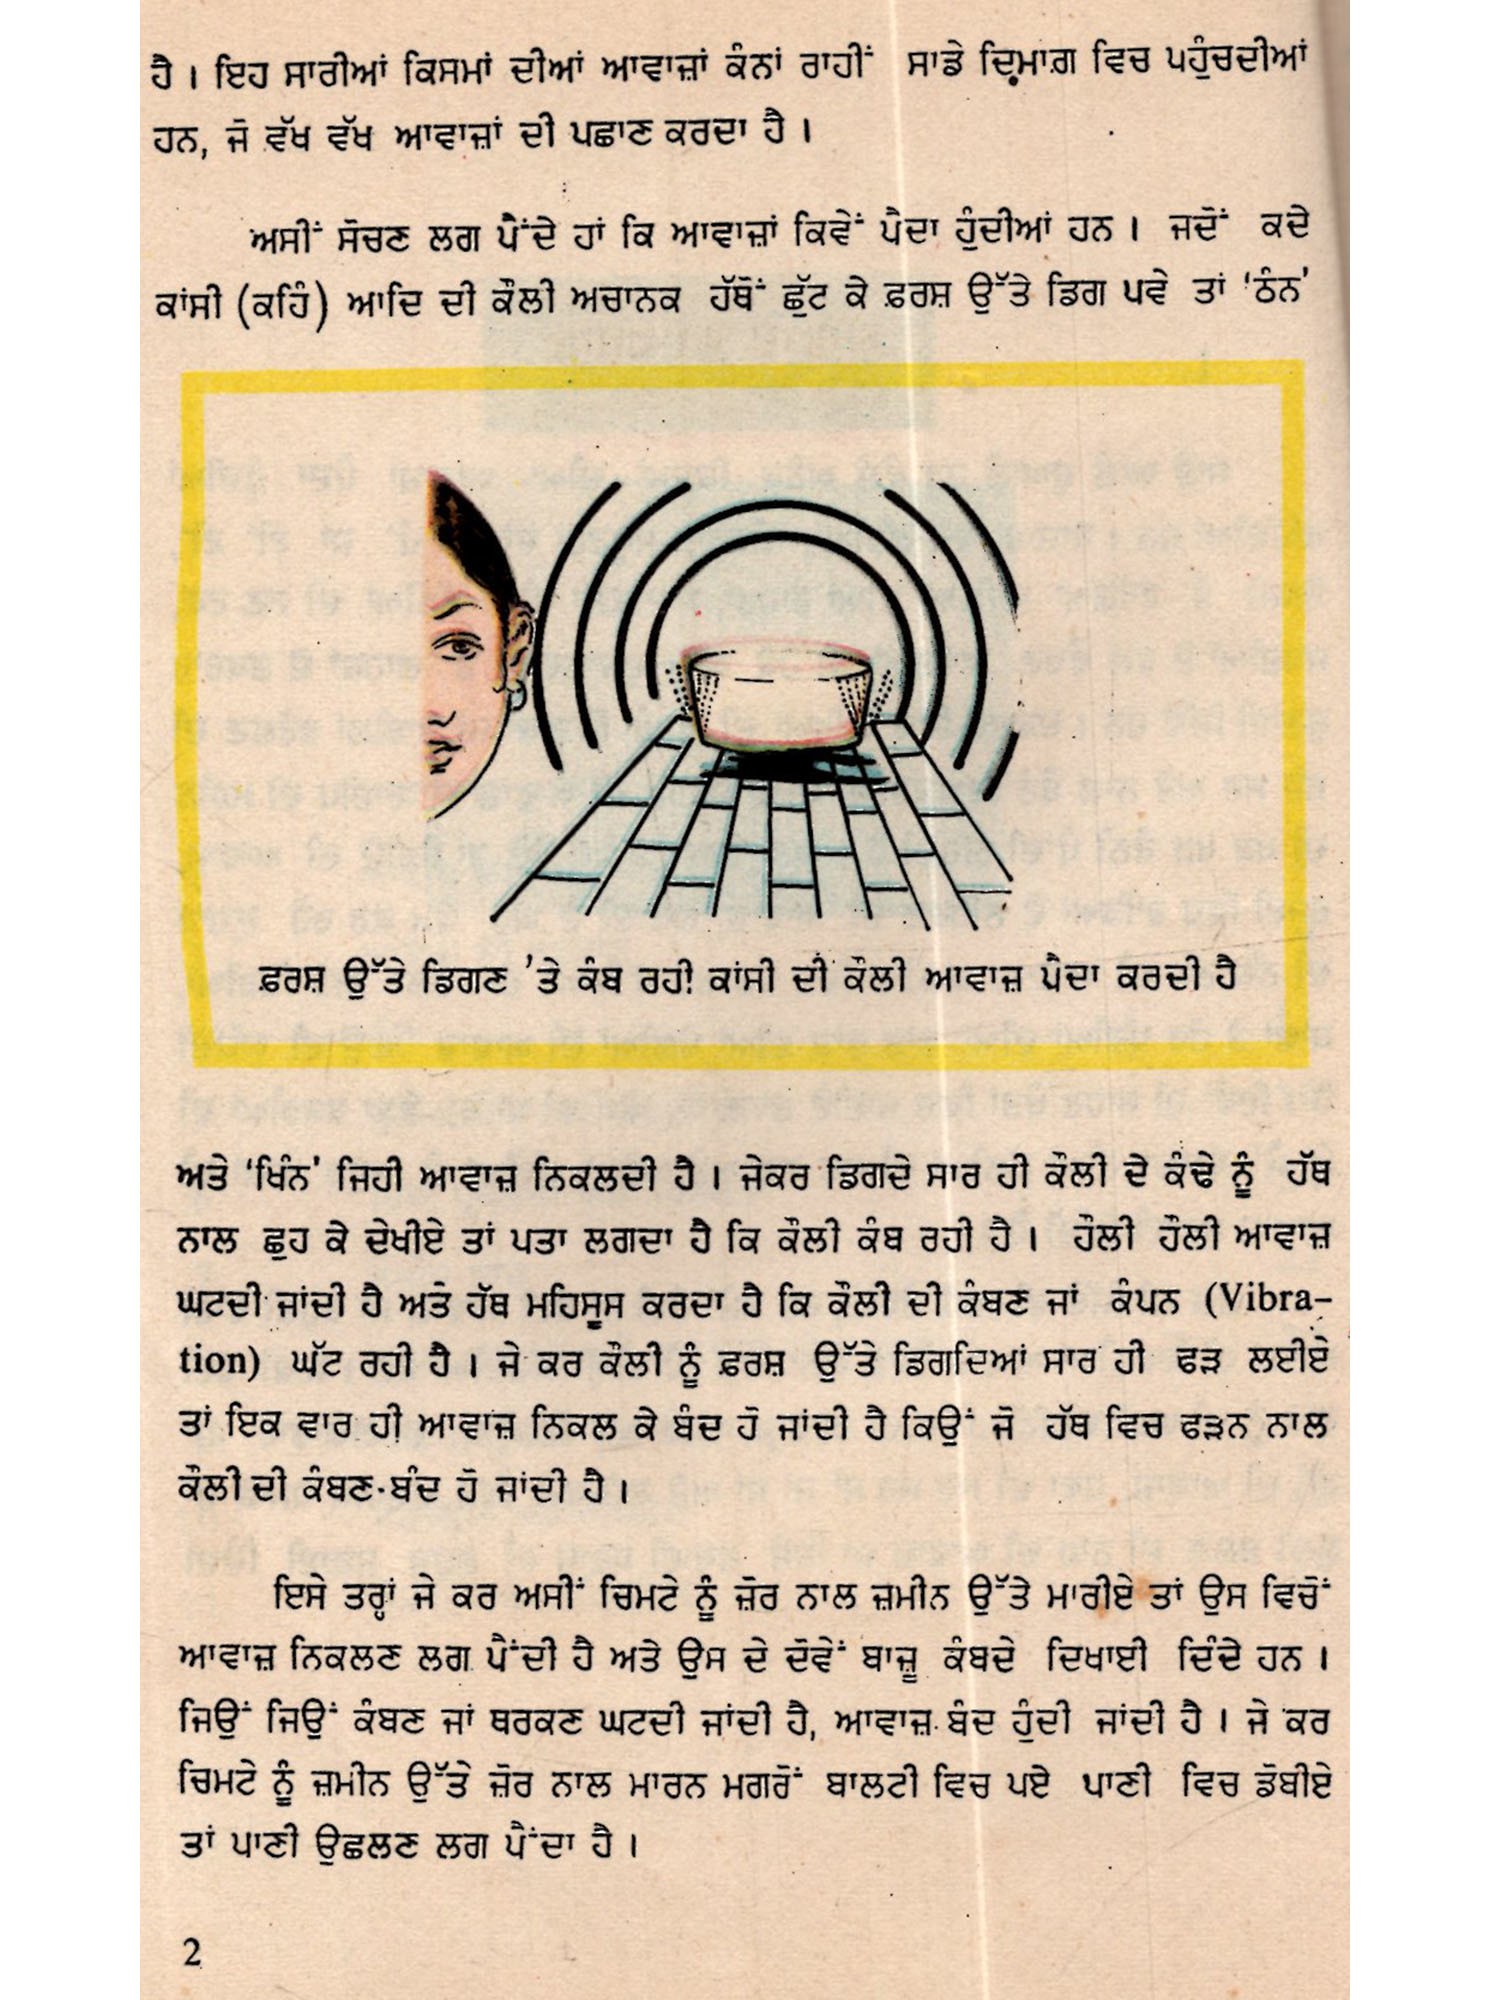 ਹੈ । ਇਹ ਸਾਰੀਆਂ ਕਿਸਮਾਂ ਦੀਆਂ ਆਵਾਜ਼ਾਂ ਕੰਨਾਂ ਰਾਹੀਂ ਸਾਡੇ ਦਿਮਾਗ਼ ਵਿਚ ਪਹੁੰਚਦੀਆਂ
ਹਨ, ਜੋ ਵੱਖ ਵੱਖ ਆਵਾਜ਼ਾਂ ਦੀ ਪਛਾਣ ਕਰਦਾ ਹੈ ।
ਅਸੀਂ ਸੋਚਣ ਲਗ ਪੈਂਦੇ ਹਾਂ ਕਿ ਆਵਾਜ਼ਾਂ ਕਿਵੇਂ ਪੈਦਾ ਹੁੰਦੀਆਂ ਹਨ । ਜਦੋਂ ਕਦੇ
ਕਾਂਸੀ (ਕਹਿੰ) ਆਦਿ ਦੀ ਕੌਲੀ ਅਚਾਨਕ ਹੱਥੋਂ ਛੁੱਟ ਕੇ ਫ਼ਰਸ਼ ਉੱਤੇ ਡਿਗ ਪਵੇ ਤਾਂ ‘ਠੰਨ’
ਫ਼ਰਸ਼ ਉੱਤੇ ਡਿਗਣ ’ਤੇ ਕੰਬ ਰਹੀ ਕਾਂਸੀ ਦੀ ਕੌਲੀ ਆਵਾਜ਼ ਪੈਦਾ ਕਰਦੀ ਹੈ
ਅਤੇ ‘ਖਿੰਨ’ ਜਿਹੀ ਆਵਾਜ਼ ਨਿਕਲਦੀ ਹੈ । ਜੇਕਰ ਡਿਗਦੇ ਸਾਰ ਹੀ ਕੌਲੀ ਦੇ ਕੰਢੇ ਨੂੰ ਹੱਥ
ਨਾਲ ਛੁਹ ਕੇ ਦੇਖੀਏ ਤਾਂ ਪਤਾ ਲਗਦਾ ਹੈ ਕਿ ਕੌਲੀ ਕੰਬ ਰਹੀ ਹੈ । ਹੌਲੀ ਹੌਲੀ ਆਵਾਜ਼
ਘਟਦੀ ਜਾਂਦੀ ਹੈ ਅਤੇ ਹੱਥ ਮਹਿਸੂਸ ਕਰਦਾ ਹੈ ਕਿ ਕੌਲੀ ਦੀ ਕੰਬਣ ਜਾਂ ਕੰਪਨ (Vibra-
tion) ਘੱਟ ਰਹੀ ਹੈ । ਜੇ ਕਰ ਕੌਲੀ ਨੂੰ ਫ਼ਰਸ਼ ਉੱਤੇ ਡਿਗਦਿਆਂ ਸਾਰ ਹੀ ਫੜ ਲਈਏ
ਤਾਂ ਇਕ ਵਾਰ ਹੀ ਆਵਾਜ਼ ਨਿਕਲ ਕੇ ਬੰਦ ਹੋ ਜਾਂਦੀ ਹੈ ਕਿਉਂ ਜੋ ਹੱਥ ਵਿਚ ਫੜਨ ਨਾਲ
ਕੌਲੀ ਦੀ ਕੰਬਣ ਬੰਦ ਹੋ ਜਾਂਦੀ ਹੈ ।
ਇਸੇ ਤਰ੍ਹਾਂ ਜੇ ਕਰ ਅਸੀਂ ਚਿਮਟੇ ਨੂੰ ਜ਼ੋਰ ਨਾਲ ਜ਼ਮੀਨ ਉੱਤੇ ਮਾਰੀਏ ਤਾਂ ਉਸ ਵਿਚੋਂ
ਆਵਾਜ਼ ਨਿਕਲਣ ਲਗ ਪੈਂਦੀ ਹੈ ਅਤੇ ਉਸ ਦੇ ਦੋਵੇਂ ਬਾਜ਼ੂ ਕੰਬਦੇ ਦਿਖਾਈ ਦਿੰਦੇ ਹਨ ।
ਜਿਉਂ ਜਿਉਂ ਕੰਬਣ ਜਾਂ ਥਰਕਣ ਘਟਦੀ ਜਾਂਦੀ ਹੈ, ਆਵਾਜ਼ ਬੰਦ ਹੁੰਦੀ ਜਾਂਦੀ ਹੈ । ਜੇ ਕਰ
ਚਿਮਟੇ ਨੂੰ ਜ਼ਮੀਨ ਉੱਤੇ ਜ਼ੋਰ ਨਾਲ ਮਾਰਨ ਮਗਰੋਂ ਬਾਲਟੀ ਵਿਚ ਪਏ ਪਾਣੀ ਵਿਚ ਡੋਬੀਏ
ਤਾਂ ਪਾਣੀ ਉਛਲਣ ਲਗ ਪੈਂਦਾ ਹੈ ।
2